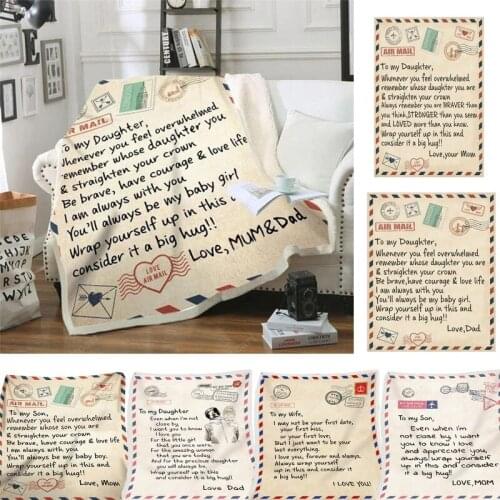 AIR MAIL
To my Daughter,
Whenever you feel overwhelmed
remember whose daughter you are
& straighten your crown
Be brave, have courage & love life
I am always with you
You'll always be my baby girl
Wrap yourself up in this and
consider it a big hug!!
Love, MUM&Dad
LOVE
AIR MAIL
AIR MAIL
To my Daughter,
Whenever you feel overwhelmed
remember whose daughter you are
& straighten your crown
Always remember you are BRAVER than
you think, STRONGER than you seem
and LOVED more than you know.
Wrap yourself up in this and
consider it a big hug!!
Love, your Mom
To my Daughter,
Whenever you feel overwhelmed
remember whose daughter you are
& straighten your crown
Be brave, have courage & love life
I am always with you
You'll always be my baby girl.
Wrap yourself up in this and
consider it a big hug!!
Love, Dad
AIR MAIL
To my Son,
Whenever you feel overwhelmed
remember whose son you are
& straighten your crown
Be brave, have courage & love life
I am always with you
You'll always be my baby boy.
Wrap yourself up in this and
consider it a big hug!!
Love, Mom
To my Daughter
Even when i'm not
close by
I want you to know
I love you
For the little girl
that you once were,
For the amazing woman
that you are today
And for the precious daughter
you will always be.
Wrap yourself up in this
and consider it
a big hug!
Love Dad
To my Wife,
I may not be your first date,
your first kiss,
or your first love,
But I just want to be
your last everything.
I love you, forever and always.
Always wrap yourself
up in this and consider it
a big hug!
I LOVE YOU!
To my Son,
Even when i'm
not close by I want
you to know I love
and appreciate you,
always wrap yourself
up in this and consider it
a big hug!
LOVE, MOM